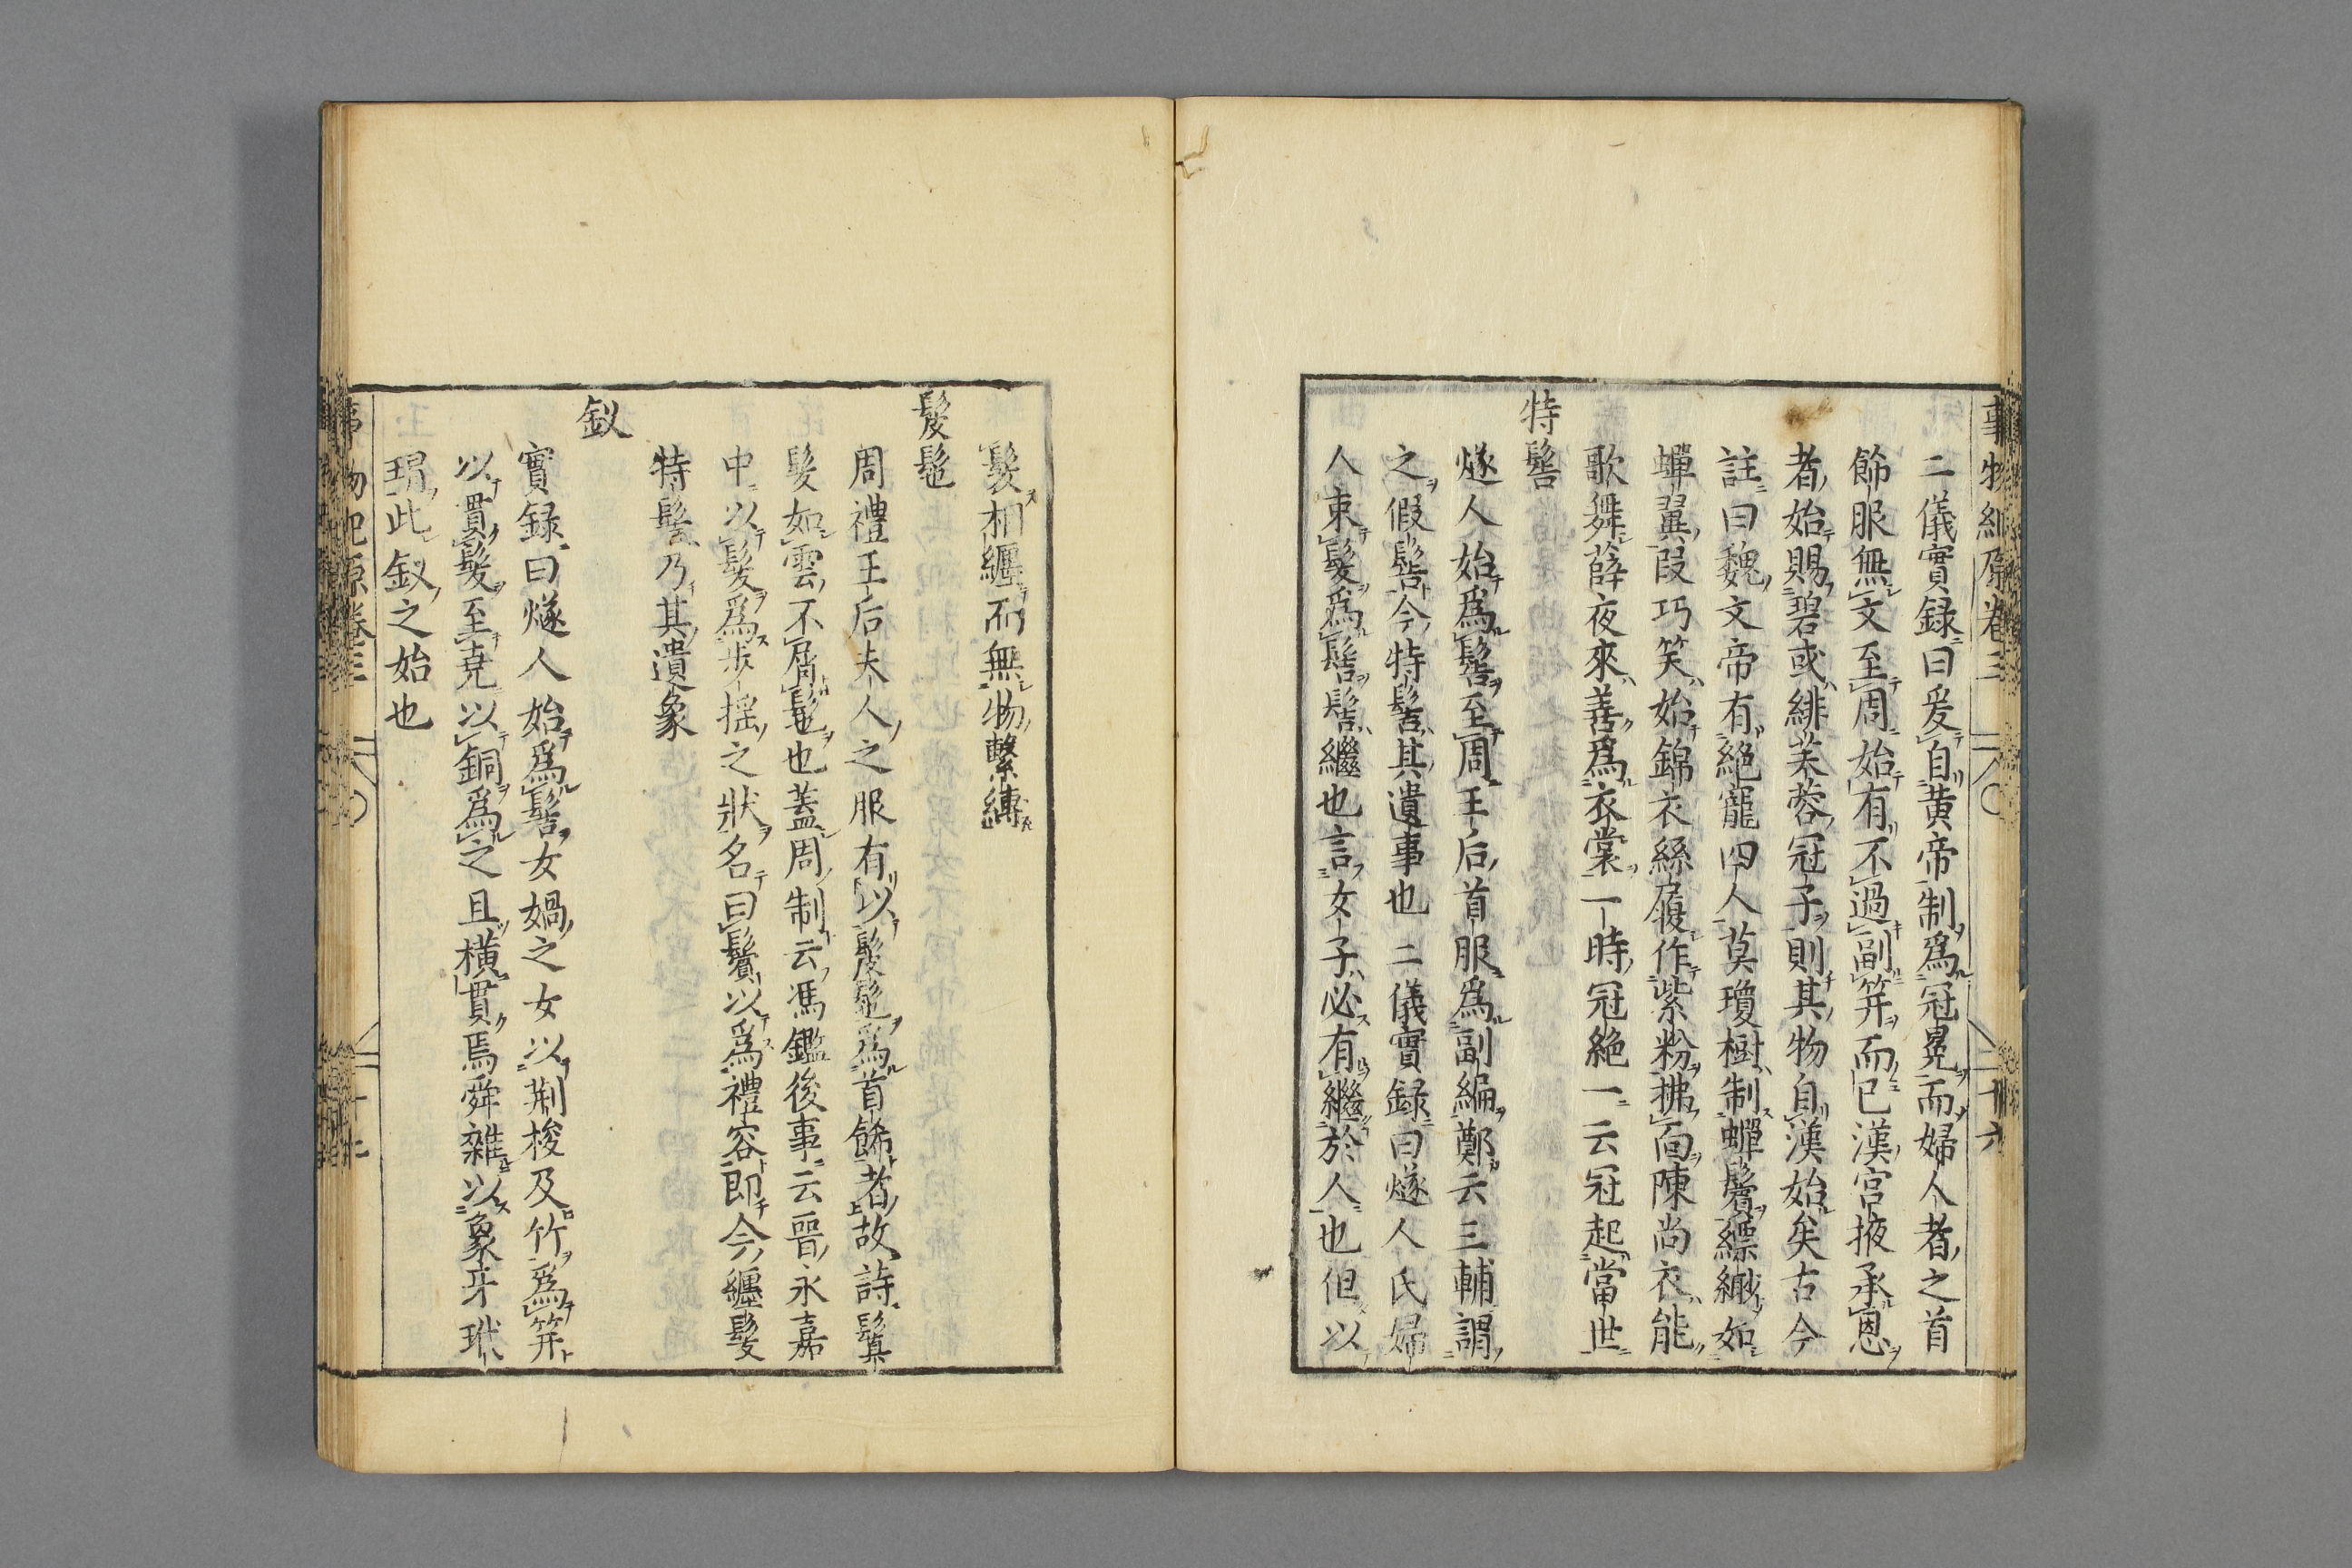 事物紀原卷三
二儀實録曰爰自黄帝制爲冠冕而婦人者之首
飾服無文至周始有不過副笄而已漢宫掖承恩
者始賜碧或緋芙蓉冠子則其物自漢始矣古今
註曰魏文帝有絶寵四人莫瓊樹制蟬鬢縹緲如
蟬翼叚巧笑始錦衣絲履作紫粉拂面陳尚衣能
歌舞薛夜來善爲衣裳一時冠絶一云冠起當世
特髻
燧人始爲髻至周王后首服爲副編鄭云三輔謂
之假髻今特髻其遺事也二儀實録曰燧人氏婦
人束髮爲髻髻繼也言女子必有繼於人也但以
髮相纏而無物繫縛
髲髢
周禮王后夫人之服有以髲髢爲首餙者故詩鬒
髮如雲不屑髢也蓋周制云馮鑑後事云晉永嘉
中以髮爲步揺之狀名曰鬢以爲禮容即今纏髮
特髻乃其遺象
釵
實録曰燧人始爲髻女媧之女以荆梭及竹爲笄
以貫髮至堯以銅爲之且横貫焉舜雜以象牙玳
瑁此釵之始也